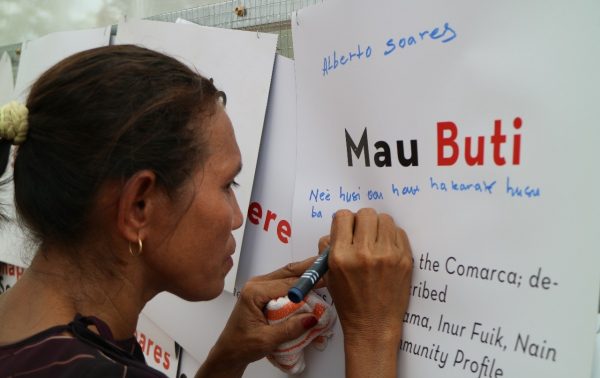 Alberto soares
Mau Buti
Neè husi oan hau hakarak husu
ba
ere
the Comarca; de-
cribed
ama, Inur Fuik, Nain
mmunity Profile
ares